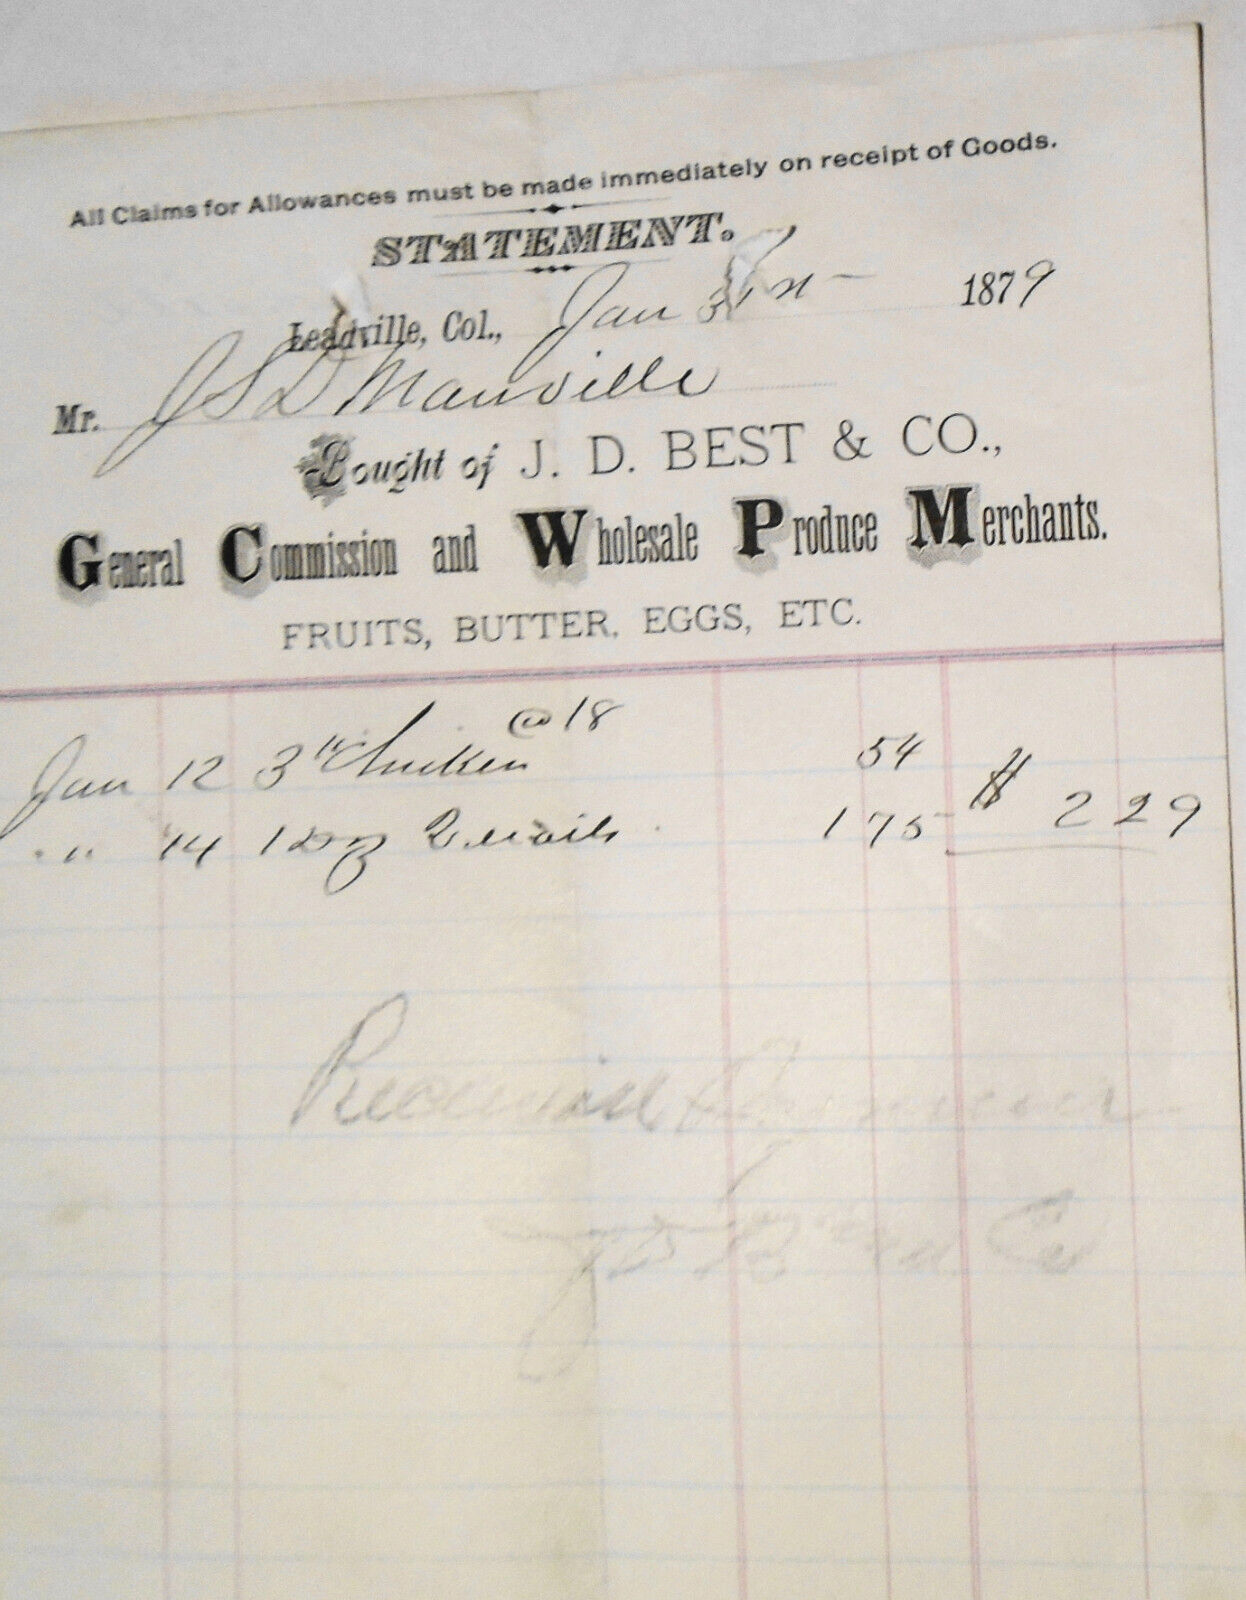 All Claims for Allowances must be made immediately on receipt of Goods.
STATEMENT.
Leadville, Col., Jan 31st 1879
Mr. J S D Manville
Bought of J. D. BEST & CO.,
General Commission and Wholesale Produce Merchants.
FRUITS, BUTTER, EGGS, ETC.
Jan 12 3 lb Chicken @ 18 54
" 14 1 Doz Quails 1 75 $ 2 29
Received Payment
J D Best & Co